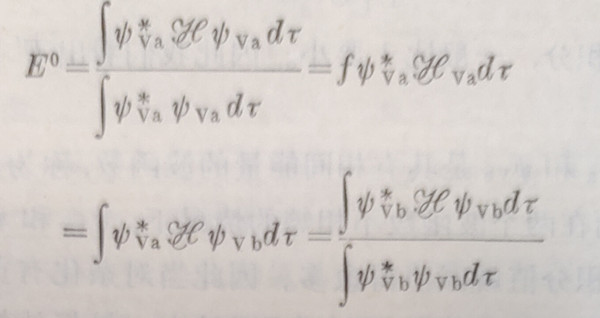 E⁰ = ∫ψ*Va ℋ ψVa dτ / ∫ψ*Va ψVa dτ = fψ*Va ℋVa dτ
= ∫ψ*Va ℋ ψVb dτ = ∫ψ*Vb ℋ ψVb dτ / ∫ψ*Vb ψVb dτ